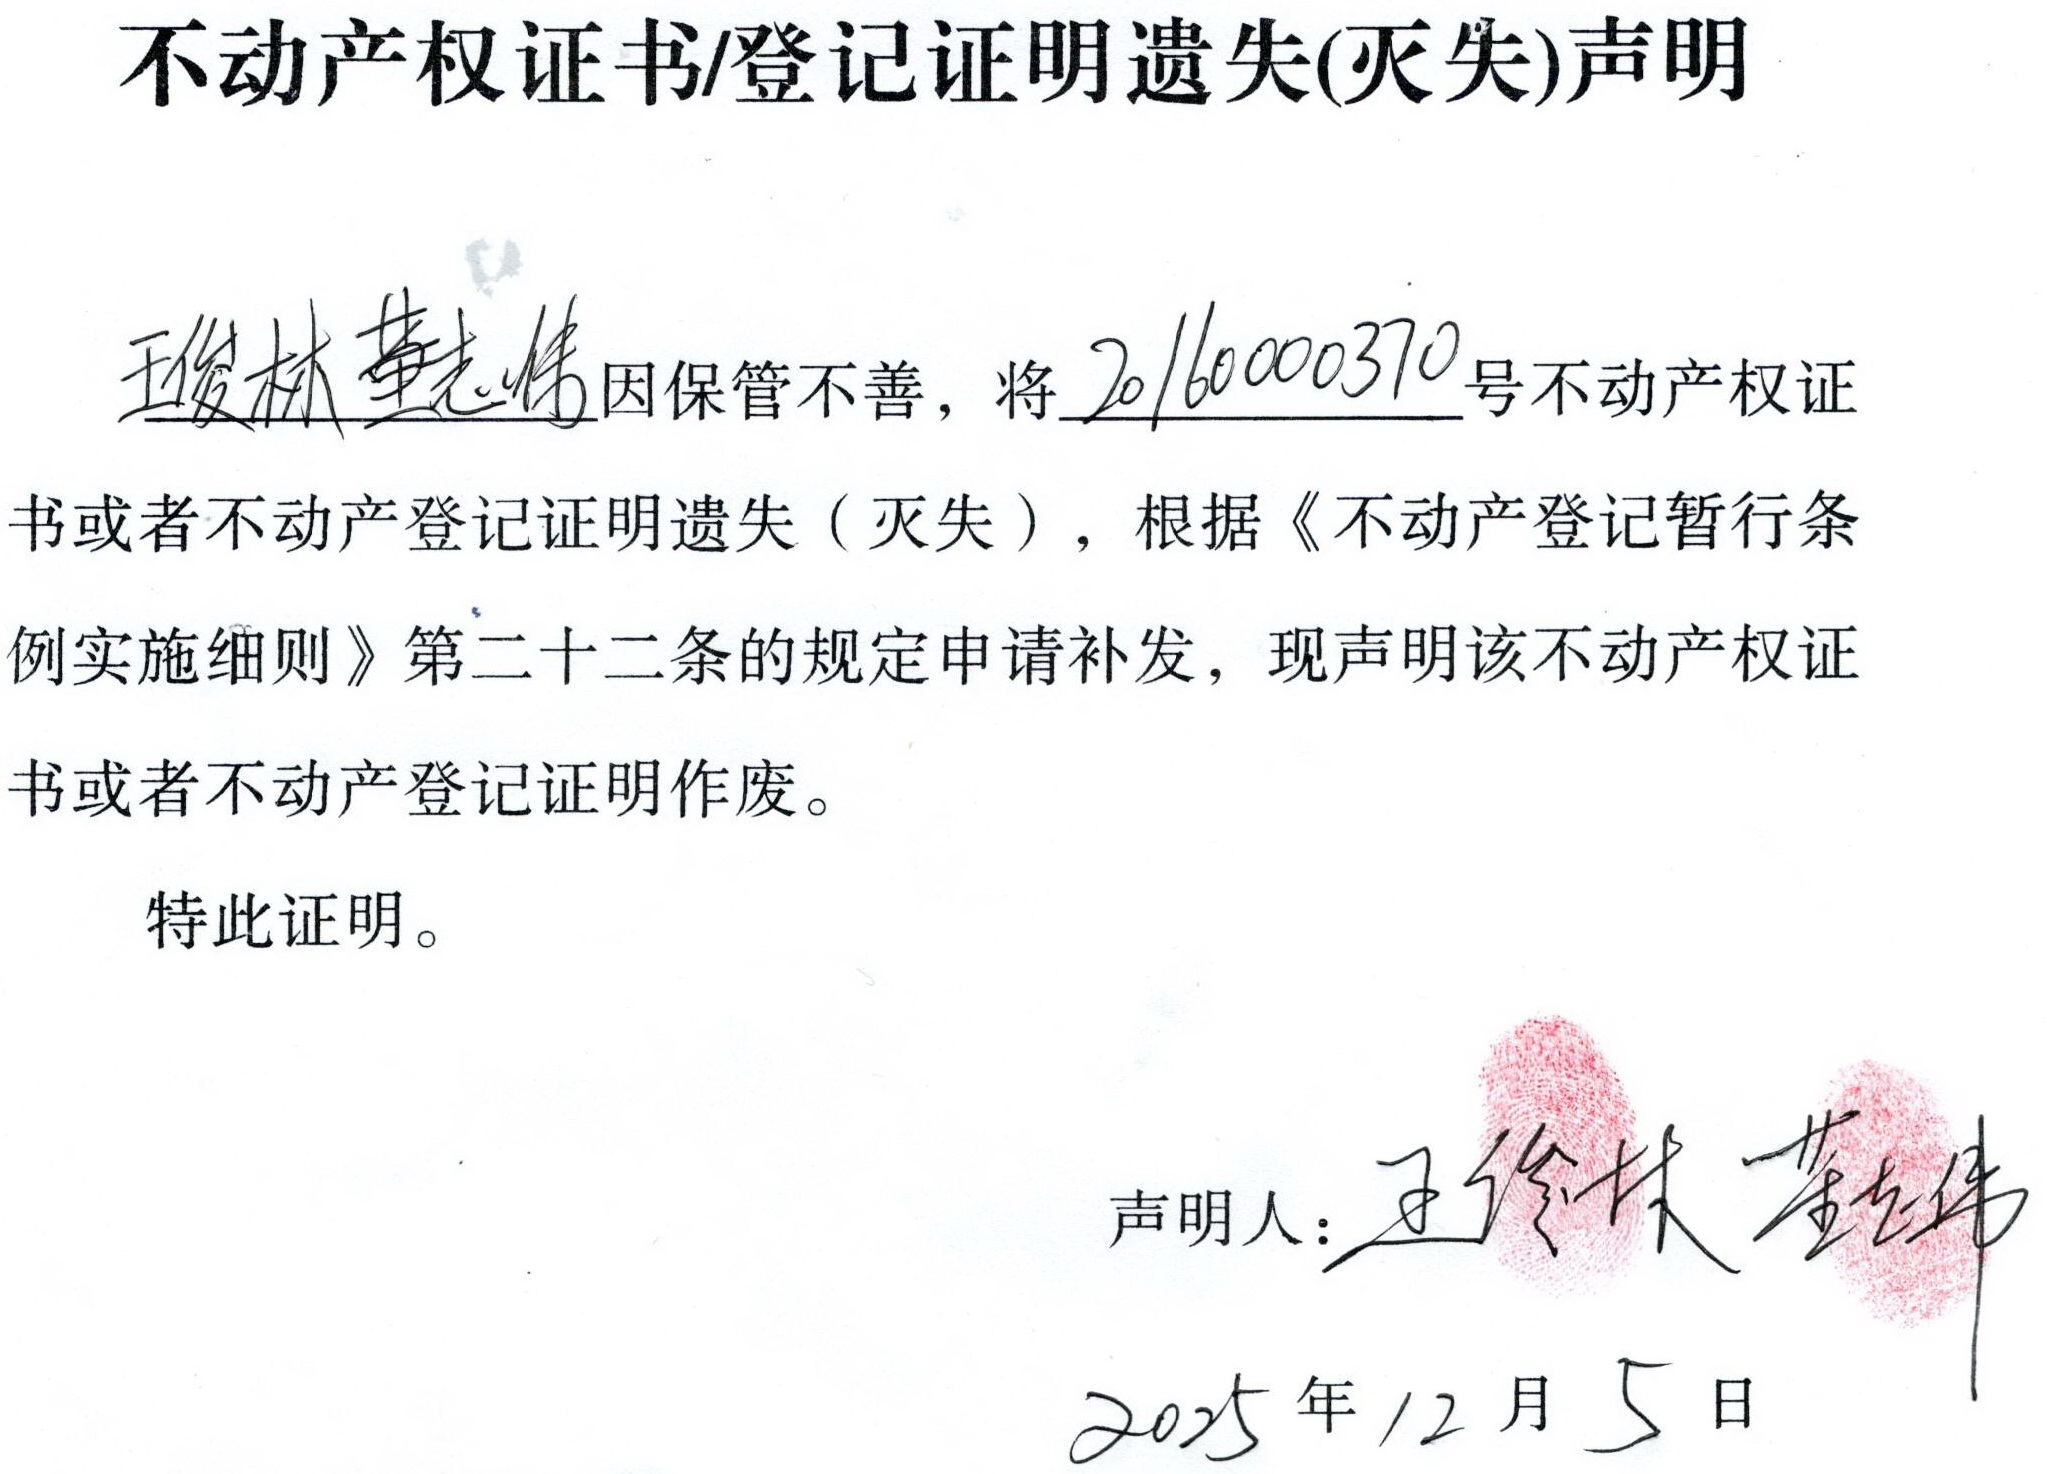 不动产权证书/登记证明遗失(灭失)声明
王俊林 董志伟因保管不善，将20160000370号不动产权证
书或者不动产登记证明遗失（灭失），根据《不动产登记暂行条
例实施细则》第二十二条的规定申请补发，现声明该不动产权证
书或者不动产登记证明作废。
特此证明。
声明人：王俊林 董志伟
2025年12月5日